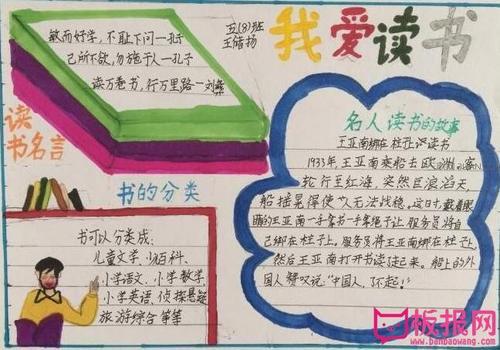 我爱读书
五(8)班
敏而好学，不耻下问一孔子
己所不欲，勿施于人一孔子
读万卷书，行万里路一刘彝
读
书名言
书的分类
书可以分类成:
儿童文学、少儿百科、
小学语文、小学数学、
小学英语、侦探悬疑
旅游综合等等
名人读书的故事
王亚南绑在柱子上读书
1933年，王亚南乘船去欧洲。客
轮行至红海，突然巨浪滔天，
船摇晃得使人无法站稳，这时，戴着眼
镜的王亚南一手拿书一手
让服务员将自
己绑在柱子上，服务员将王亚南绑在柱子上，
然后王亚南打开书读起来。船上的外
国人赞叹说:"中国人，了不起!"
板报网
www.banbaowang.com